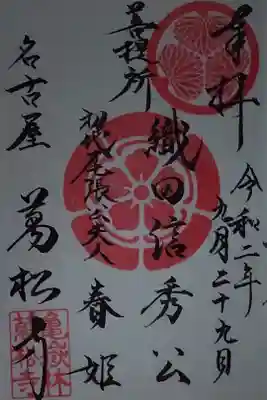 奉拝
令和二年
九月二十九日
菩提所
織田信秀公
初代尾張公夫人 春姫
名古屋 萬松寺
亀嶽林
萬松寺